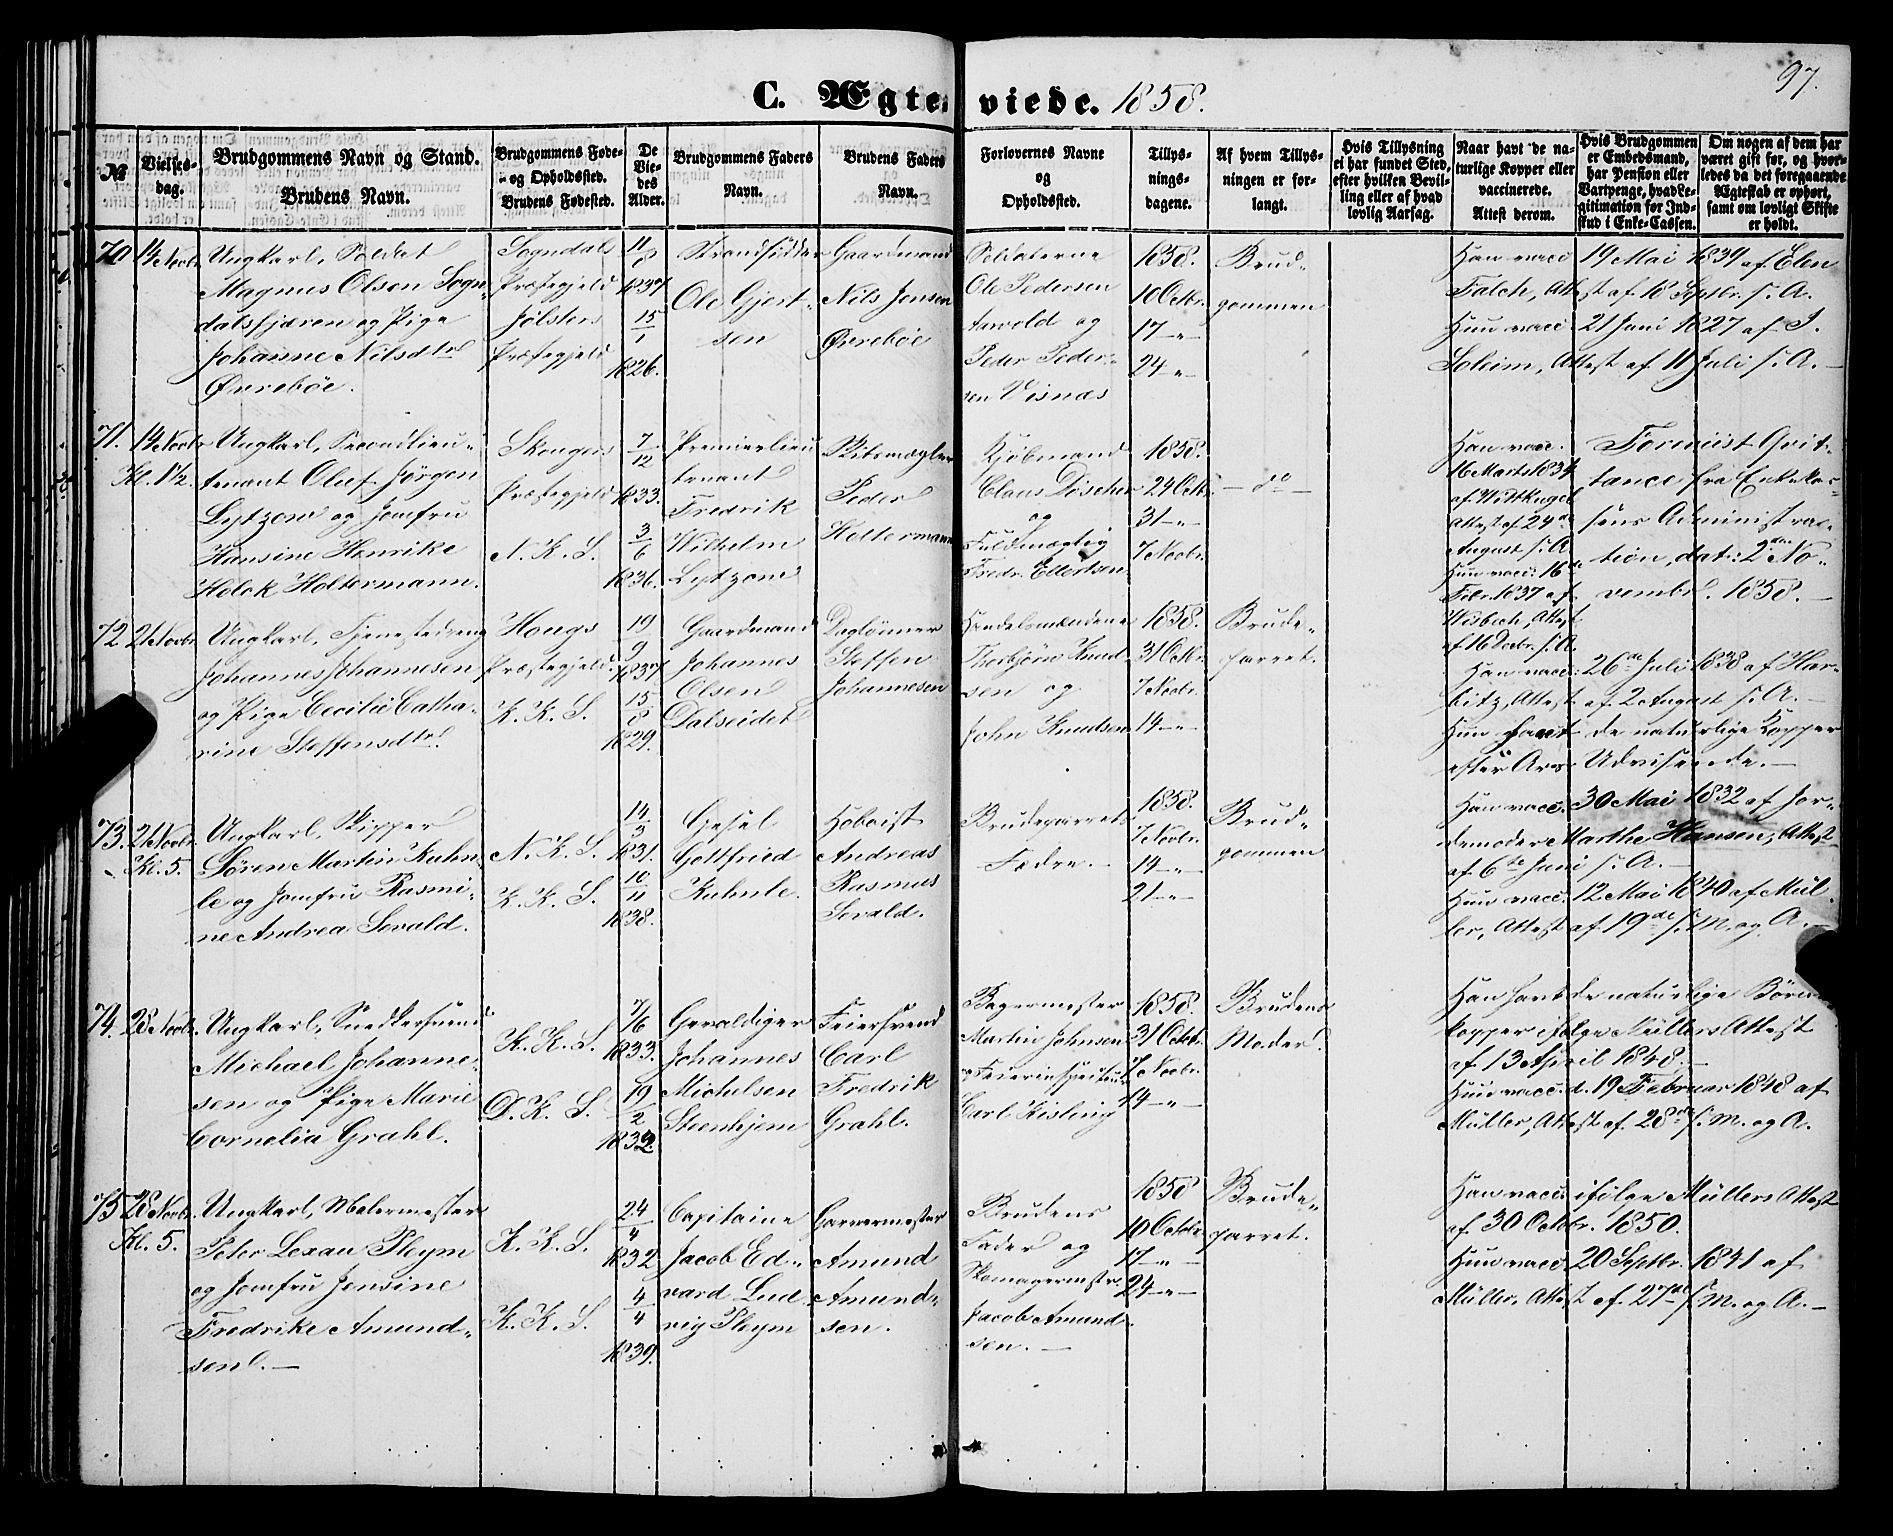 97.
C. Ægteviede. 1858.
№
Vielses-dag.
Brudgommens Navn og Stand.
Brudens Navn.
Brudgommens Føde- og Opholdssted.
Brudens Fødested.
De Viedes Alder.
Brudgommens Faders Navn.
Brudens Faders Navn.
Forlovernes Navne og Opholdssted.
Tillysningsdagene.
Af hvem Tillysningen er forlangt.
Hvis Tillysning ei har fundet Sted, efter hvilken Bevilling eller af hvad lovlig Aarsag.
Naar havt de naturlige Kopper eller vaccinerede. Attest derom.
Hvis Brudgommen er Embedsmand, har Pension eller Vartpenge, hvad Legitimation for Indskud i Enke-Cassen.
Om nogen af dem har været gift før, og hvorledes da det foregaaende Ægteskab er ophørt, samt om lovligt Skifte er holdt.
70
14 Novbr.
Ungkarl, Soldat
Magnus Olsen Sogn-
dalsfjæren og Pige
Johanne Nilsdtr
Øvrebøe.
Sogndals
Præstegjeld
Jølsters
Præstegjeld
11/8
1837
15/1
1826.
Strandsidder
Ole Gjert-
sen
Gaardmand
Nils Jensen
Øvrebøe
Soldaterne
Ole Pedersen
Aarvold og
Peder Peder-
sen Visnæs
1858.
10 Octbr.
17 -"-
24 -"-
Brud-
gommen
Han vacc. 19 Mai 1839 af Elen
Falch, Attest af 18 Septbr. s. A.
Hun vacc. 21 Juni 1827 af J.
Soleim, Attest af 11 Juli s. A. -
71.
14 Novbr.
Kl. 1½.
Ungkarl, Secondlieu-
tenant Oluf Jørgen
Lytzow og Jomfru
Hansine Henrike
Holck Holtermann.
Skougers
Præstegjeld
N. K. S.
7/12
1833.
3/6
1836.
Premierlieu
tenant
Fredrik
Wilhelm
Lytzow
Skibsmægler
Peder
Holtermann
Kjøbmand
Claus Döscher
og
Fuldmægtig
Fredr. Ellertsen
1858.
24 Octbr.
31 -"-
7 Novbr.
- do -
Han vacc.
16 Marts 1834
af Wittkugel
Attest af 24de
August s. A.
Hun vacc. 16de
Febr. 1837 af
Wisbech, Attest
af 16 Decbr. s. A.
Foreviist Qvit-
tance fra Enkekas-
sens Administra-
tion, dat: 2den No-
vember. 1858. -
72
21 Novbr.
Ungkarl, Tjenestedreng
Johannes Johannesen
og Pige Cecilie Catha-
rine Steffensdtr
Hougs
Præstegjeld.
K. K. S.
19/9
1837
15/8
1829.
Gaardmand
Johannes
Olsen
Dalseidet
Daglønner
Steffen
Johannesen
Handelsmændene
Thorbjørn Knud
sen og
John Knudsen
1858.
31 Octbr.
7 Novbr.
14 -"-
Brude-
parret.
Han vacc: 26de Juli 1838 af Har-
bitz, Attest af 2 August s. A. -
Hun havt de naturlige Kopper
efter Ars Udvisende. -
73.
21 Novbr.
Kl. 5.
Ungkarl, Skipper
Søren Martin Kuhn-
le og Jomfru Rasmi-
ne Andrea Sevald.
N. K. S.
K. K. S.
14/3
1831.
10/11
1838.
Gesel
Gottfried
Kuhnle.
Hoboist
Andreas
Rasmus
Sevald.
Brudeparrets
Fædre. -
1858.
7 Novbr.
14 -"-
21 -"-
Brud-
gommen
Han vacc. 30 Mai 1832 af Jor-
demoder Marthe Hansen, Attest
af 6te Juni s. A. -
Hun vacc. 12 Mai 1840 af Mül-
ler, Attest af 19de s. M. og A. -
74.
28 Novbr.
Ungkarl, Snedkersvend
Michael Johanne-
sen og Pige Marie
Cornelia Grahl.
K. K. S.
D. K. S.
7/6
1833.
19/2
1832.
Gevaldiger
Johannes
Michelsen
Steenhjem
Feiersvend
Carl
Fredrik
Grahl.
Bagermester
Martin Johnsen
og Feierinspecteur
Carl Kisling
1858.
31 Octbr.
7 Novbr.
14 -"-
Brudens
Moder.
Han havt de naturlige Børne-
kopper ifølge Müllers Attest
af 13 April 1848. -
Hun vacc. d. 19 Februar 1848 af
Müller, Attest af 28de s. M. og A.
75
28 Novbr.
Kl. 5.
Ungkarl, Malermester
Peter Lexau Pleym
og Jomfru Jensine
Fredrike Amund-
sen. -
K. K. S.
K. K. S.
24/4
1832
4/4
1839.
Capitaine
Jacob Ed-
vard Lud-
vig Pleym
Garvermester
Amund
Amund-
sen.
Brudens
Fader og
Skomagermstr.
Jacob Amund
sen. -
1858
10 Octbr.
17 -"-
24 -"-
Brude-
parret.
Han vacc. ifølge Müllers Attest
af 30 Octbr. 1850.
Hun vacc. 20 Septbr. 1841 af
Müller, Attest af 27de s. M. og A. -